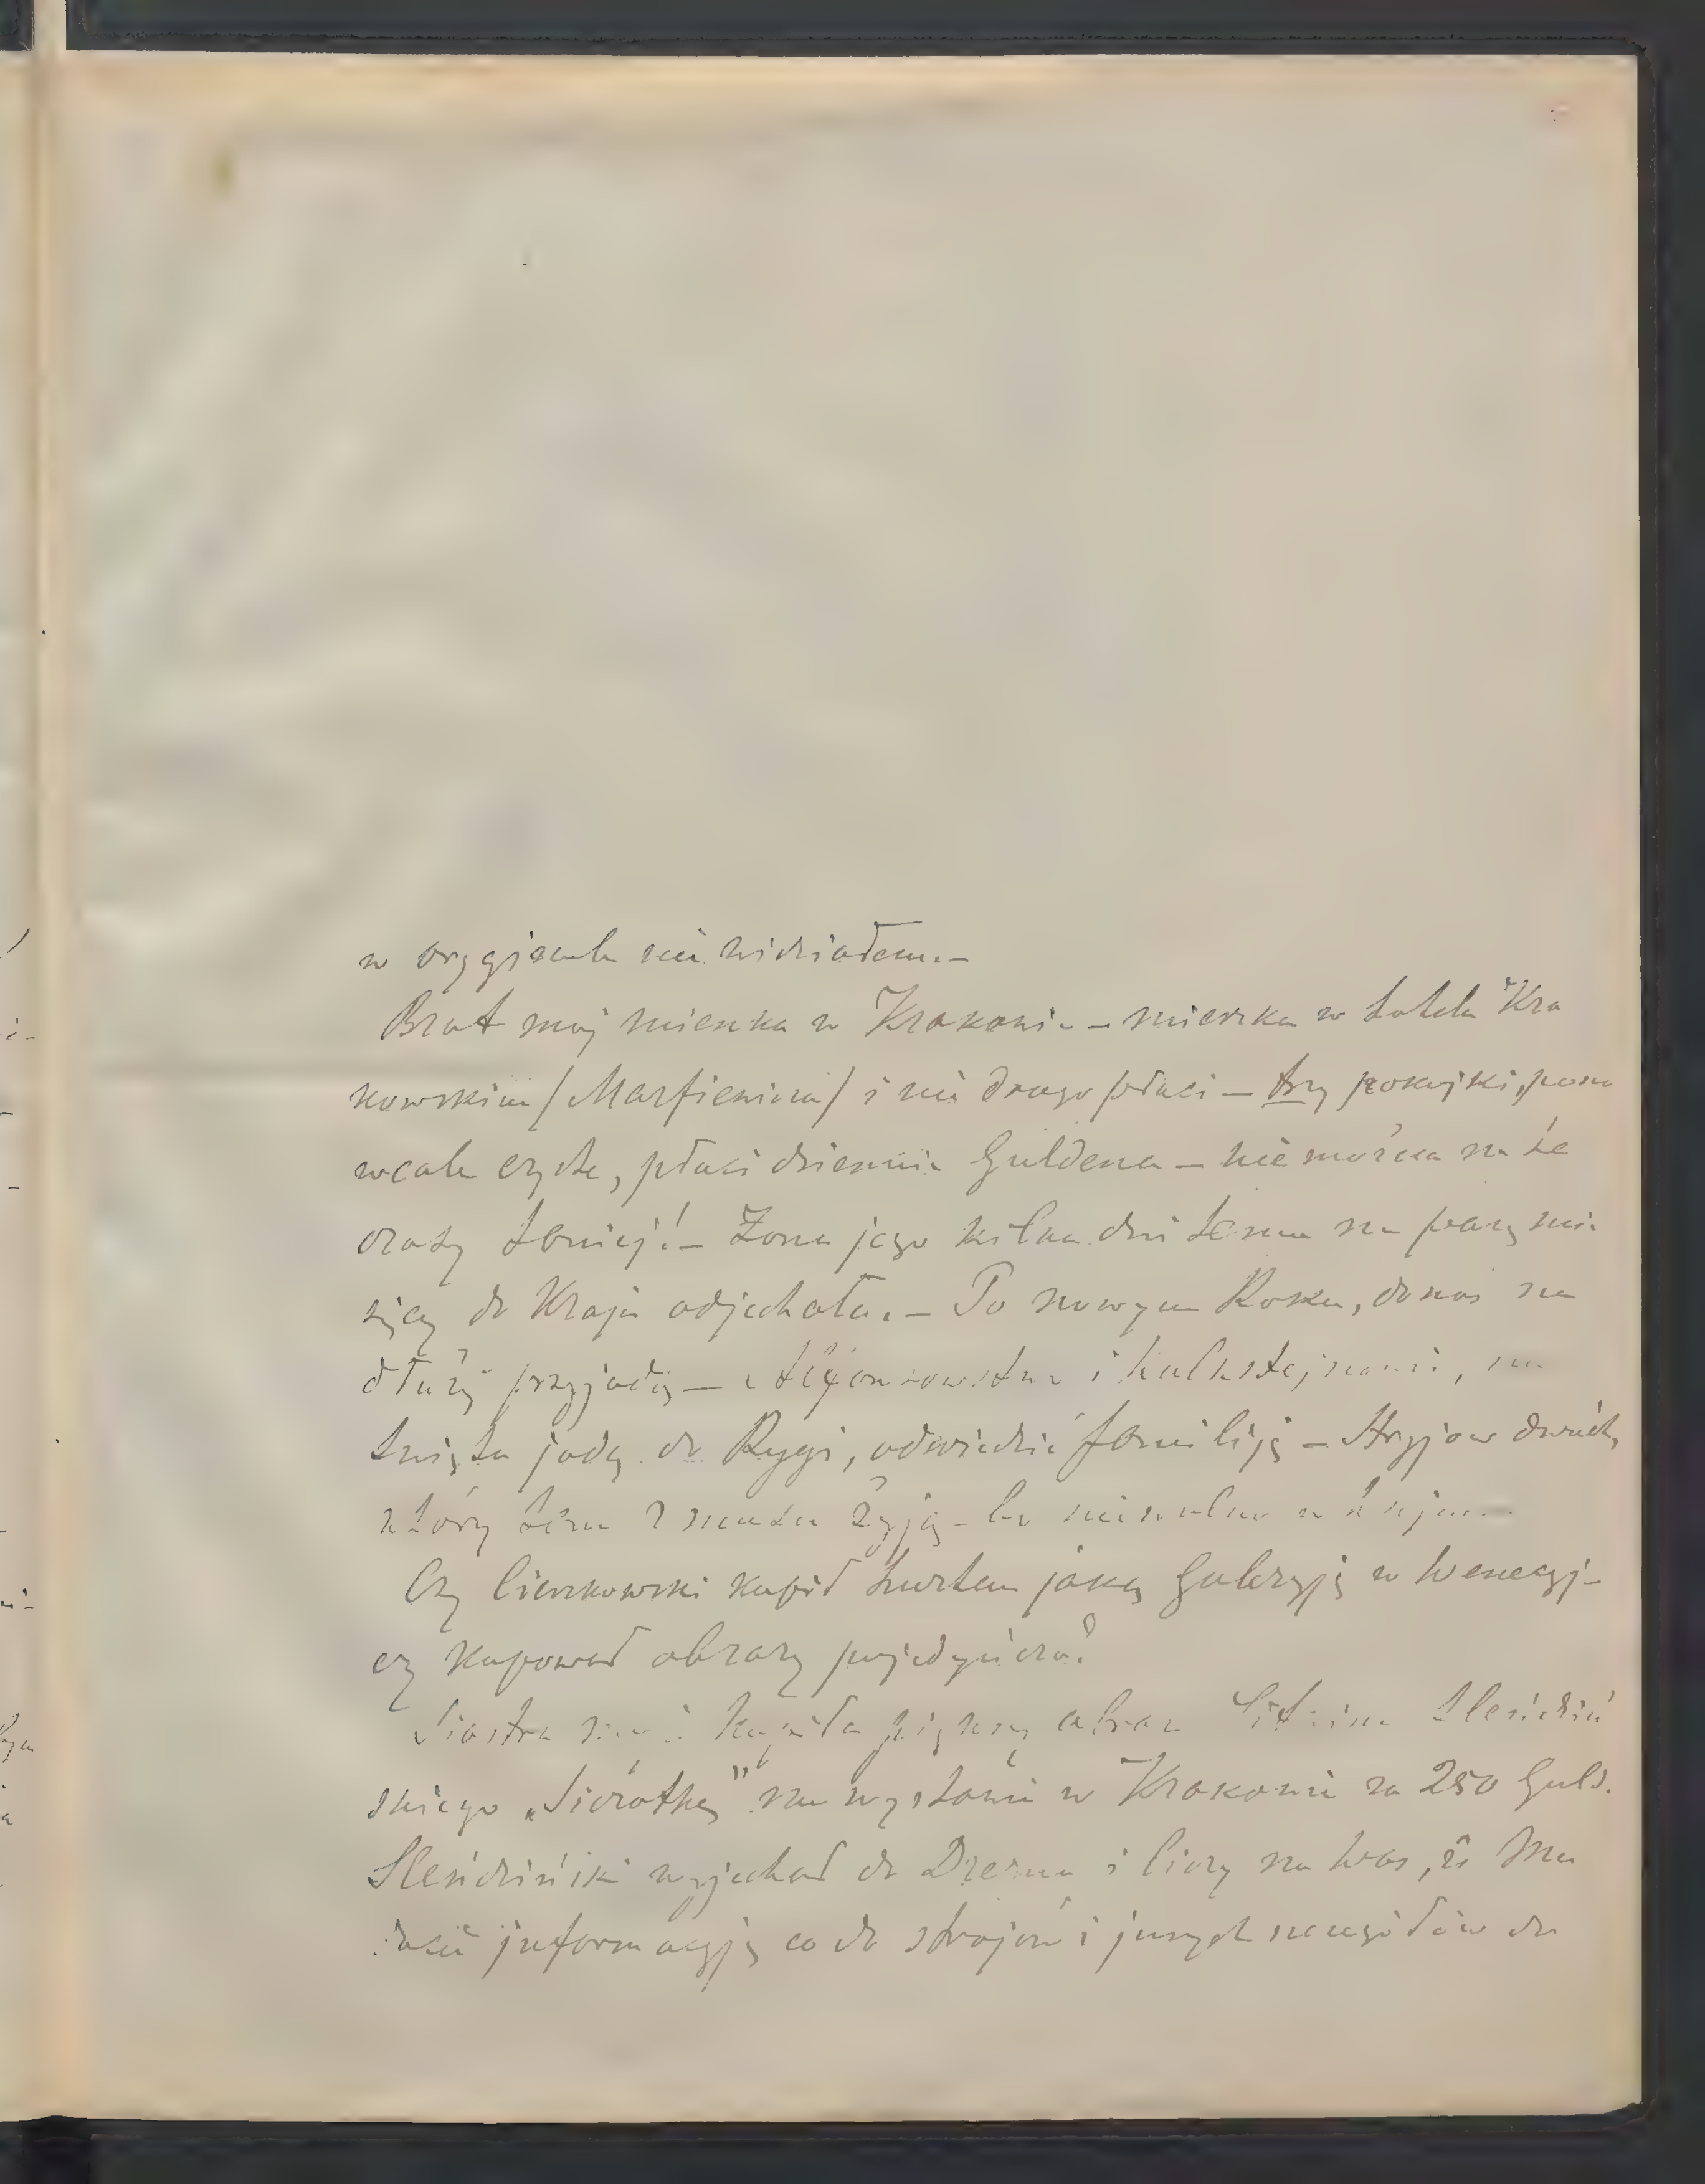 w oryginale nie widziałem.–
Brat moj mieszka w Krakowie – mieszka w hotelu Kra
kowskim / i nie drogo płaci – trzy pokojki,
wcale czyste, płaci dziennie Guldena – nie można na te
czasy taniej! – Żona jego kilka dni temu na parę mie
sięcy do Kraju odjechała. – Po nowym Roku, do nas na
dłużéj przyjadą – i, na
święta jadą do Rygi, odwiedzić familiją – Stryjow dwóch,
żyją –
Czy Cieszkowski kupił hurtem jaką Galeryję w Wenecyj –
czy kupował obrazy pojedyńczo?
Siostra kupiła piękny obraz Śleńdziń
skiego „Sierotkę” na wystawie w Krakowie za 250 Guld.
Śleńdziński wyjechał do Drezna i liczy na Was, że Mu
dacie informacyję co do strojów i do